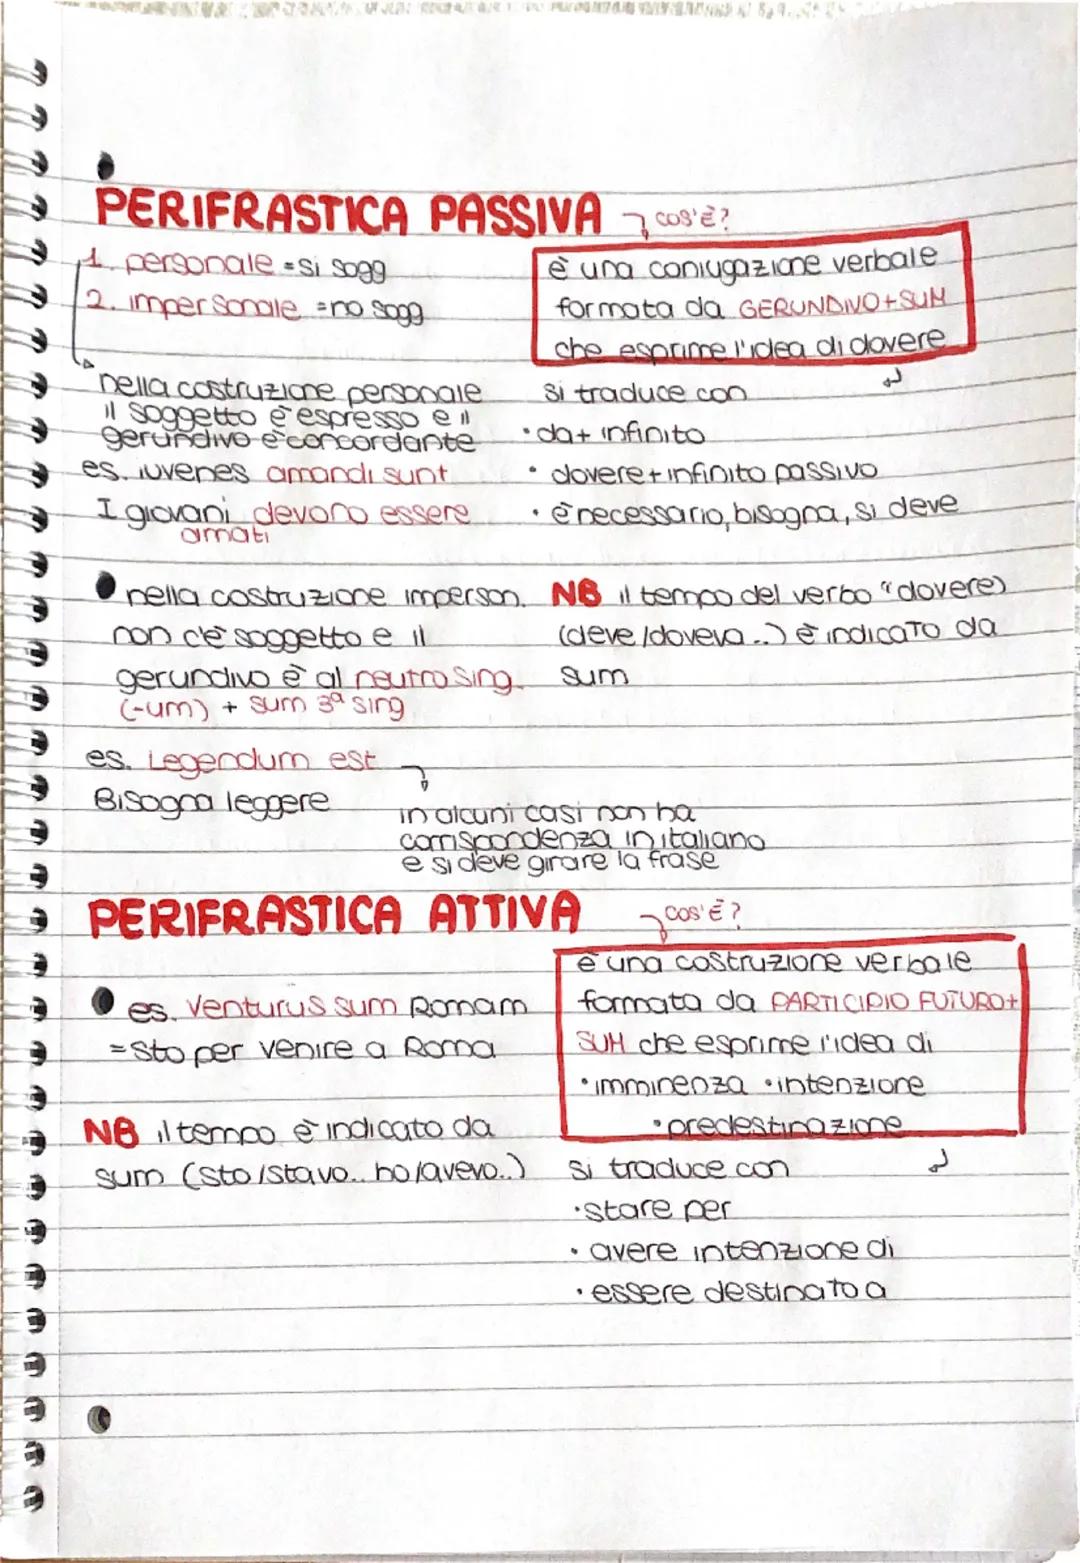 PERIFRASTICA PASSIVA
COS'È?
1. personale = si sogg
2. impersonale = no sogg
è una coniugazione verbale
formata da GERUNDIVO + SUM
che esprime l'idea di dovere
nella costruzione personale
il soggetto è espresso e il
gerundivo è concordante
es. iuvenes amandi sunt
I giovani devono essere
amati
si traduce con
• da + infinito
• dovere + infinito passivo
• è necessario, bisogna, si deve
nella costruzione imperson.
non c'è soggetto e il
gerundivo è al neutro sing.
(-um) + sum 3ª sing
NB il tempo del verbo "dovere)
(deve/doveva..) è indicato da
sum
es. Legendum est
Bisogna leggere
in alcuni casi non ha
corrispondenza in italiano
e si deve girare la frase
PERIFRASTICA ATTIVA
COS'È?
è una costruzione verbale
formata da PARTICIPIO FUTURO +
SUM che esprime l'idea di
• imminenza • intenzione
• predestinazione
es. Venturus sum Romam
= sto per venire a Roma
NB il tempo è indicato da
sum (sto/stavo.. ho/avevo..)
si traduce con
• stare per
• avere intenzione di
• essere destinato a